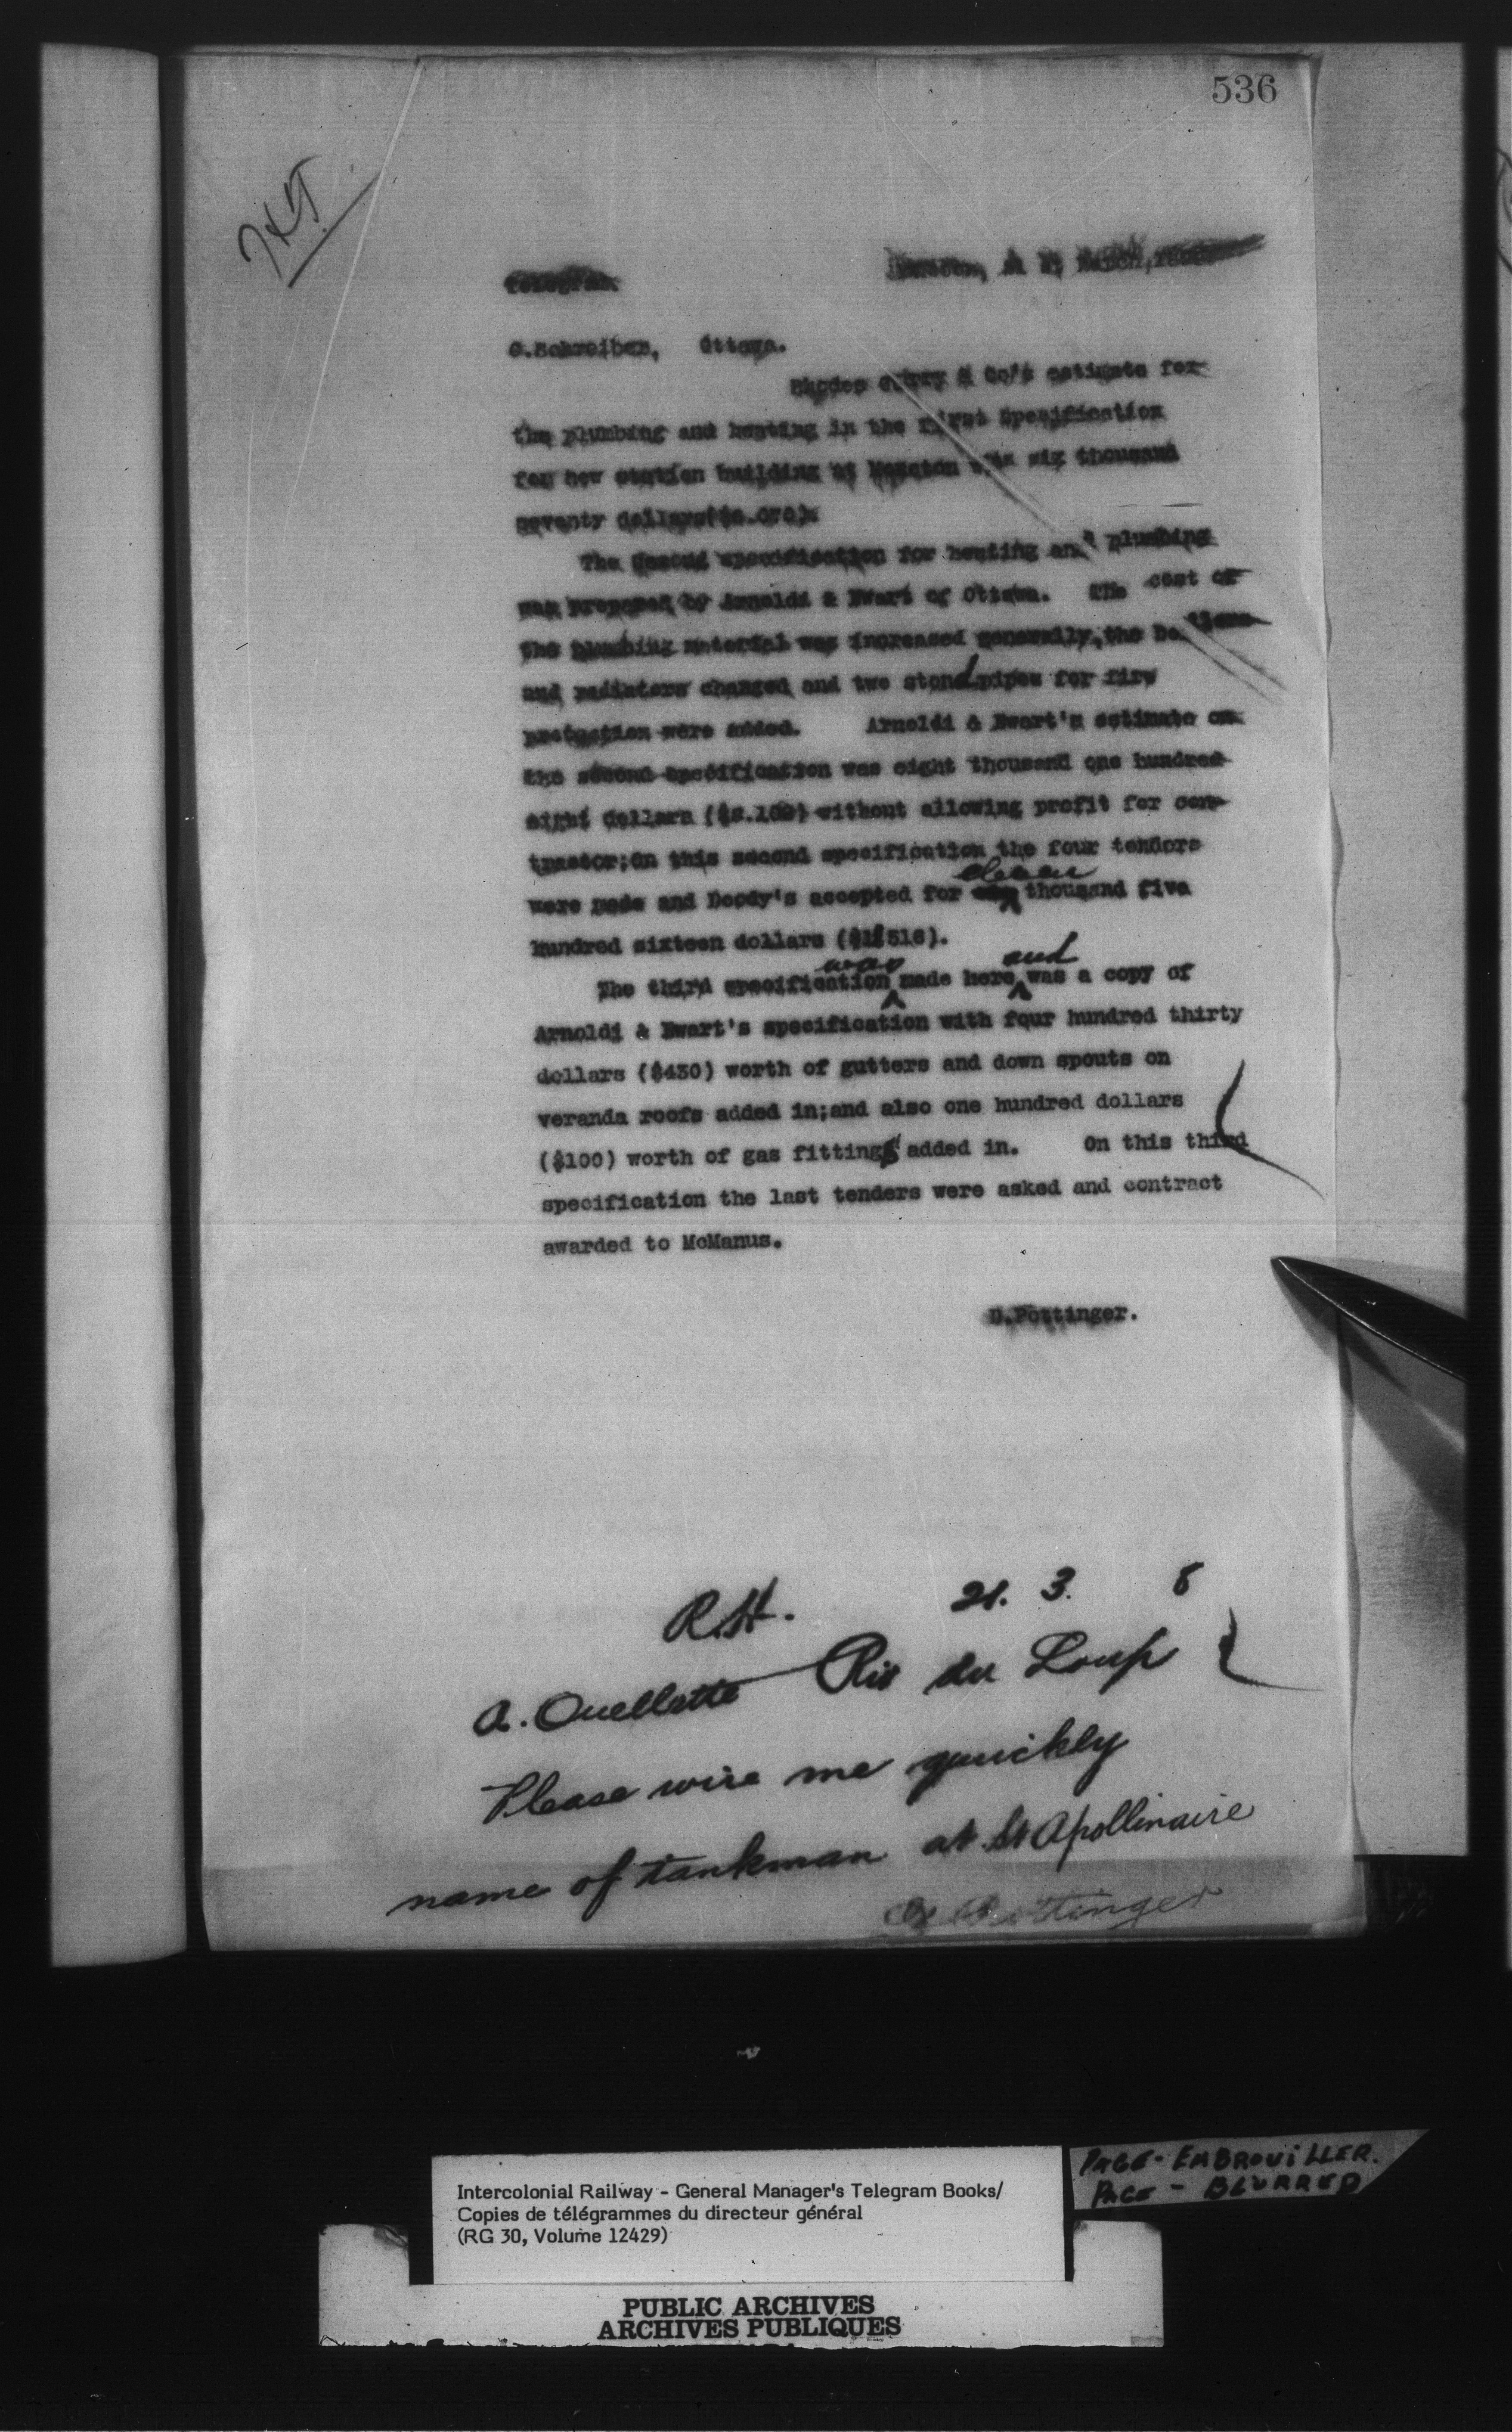 536
Telegram
Moncton, N B, March,
C.Schreiber, Ottawa.
Rhodes Curry & Co's estimate for
the plumbing and heating in the first specification
for new station building at Moncton was six thousand
seventy dollars($6.070).
The second specification for heating and plumbing
was prepared by Arnoldi & Ewart of Ottawa. The cost of
the plumbing material was increased generally, the boilers
and radiators changed and two stand pipes for fire
protection were added. Arnoldi & Ewart's estimate on
the second specification was eight thousand one hundred
eight dollars ($8.108) without allowing profit for con-
tractor;on this second specification the four tenders
were made and Doody's accepted for eleven thousand five
hundred sixteen dollars ($11516).
The third specification was made here and was a copy of
Arnoldi & Ewart's specification with four hundred thirty
dollars ($430) worth of gutters and down spouts on
veranda roofs added in;and also one hundred dollars
($100) worth of gas fitting added in. On this third
specification the last tenders were asked and contract
awarded to McManus.
D.Pottinger.
R.H. 21. 3. 8
A. Ouellette Riv du Loup
Please wire me quickly
name of tankman at St Apollinaire
D Pottinger
PAGE - EMBROUILLER.
PAGE - BLURRED
Intercolonial Railway - General Manager's Telegram Books/
Copies de télégrammes du directeur général
(RG 30, Volume 12429)
PUBLIC ARCHIVES
ARCHIVES PUBLIQUES